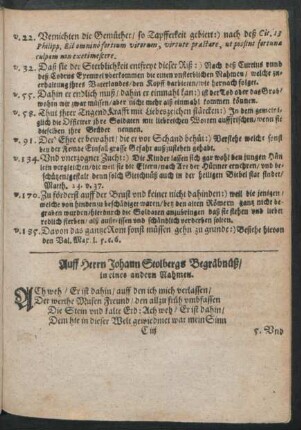 v. 22. Vernichten die Gemüther/ so Tapfferkeit gebiert:) nach deß Cic. 13
Philipp. Est omnino fortium virorum, virtute præstare, ut possint fortunæ
culpam non extimescere.
v. 32. Daß sie der Sterbligkeit entfreyet dieser Riß:) Nach deß Curtius vnnd
deß Codrus Eyempel
erhaltung ihres Vaterlandes/ den Kopff darbiethen/ wie hernach folget.
v. 55. Dahin er endlich muß/ dahin er einmahl kommt:) ist der Tod oder das Grab/
wohin wir zwar müssen/ aber nicht mehr als einmahl kommen können.
v. 58. Thut ihrer Tugend Krafft mit Liebeszeichen stärcken:) In dem gewerb
sich die Officirer ihre Soldaten mit liebreichen Worten auffzufrischen/ wenn sie
dieselben ihre Brüder nennen.
v. 91. Der Ehre er bewahrt/ die er vor Schand behüt:) Verstehe welche sonst
bey der Femae Einfall grosse Gefahr auszustehen gehabt.
v. 134. Vnd vnerzogner Zucht:) Die Kinder lassen sich gar wohl den jungen Hü-
nern vergleichen/ weil sie
schützen/ gestalt denn solch Gleichnüß auch in der heiligen Bibel stat findet/
Matth. 23. v. 37.
v. 170. Zu förderst auff der Brust vnd keiner nicht dahinden:) weil die jenigen/
welche von hinden beschädiget waren/ bey den alten Römern gantz nicht be-
graben worden/ hierdurch die Soldaten anzubelangen daß sie stehen vnd lieber
redlich davon/ als ausreissen vnd schändlich verderben sollen.
v. 195. Davon das gantze Rom sonst müssen gehn zu grunde:) Besiehe hievon
den Val. Max. l. 5. c. 6.
Auff Herrn Johann Stolbergs Begräbnüß/
in eines andern Nahmen.
ACh weh/ Er ist dahin/ auff den ich mich verlassen/
Der werthe Musen Freund/ den allzu früh vmbfassen
Die Stern vnd kalte Erd: Ach weh/ Er ist dahin/
Dem hie in dieser Welt gewiedmet war mein Sinn
C iij
5. Vnd